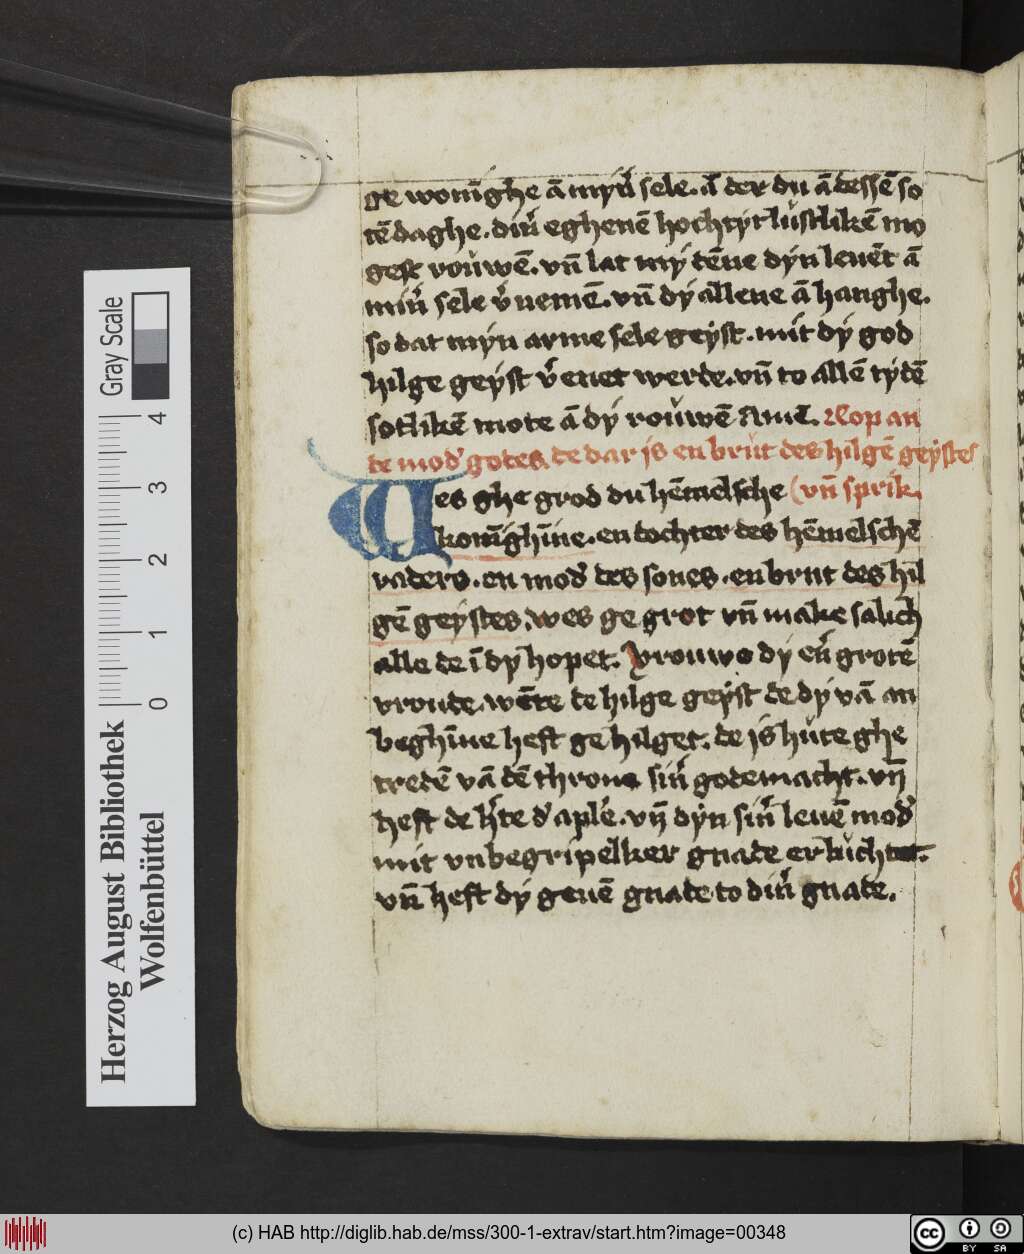 ge woniḡhe ā myn̄ sele. ī der du ā dessē so
tē daghe. din̄ eghenē hochtyt lustlikē mo
gest vrouwē. vn̄ lat my tēne dyn leuēt ā
min̄ sele v̄nemē. vn̄ dy allene ā hanghe.
so dat myn arme sele geyst. mit dy god
hilge geyst v̄enet werde. vn̄ to allē tydē
sotlikē mote ā dy vrouwē Amē. Rop an
de mod̄ godes, de dar is en brut des hilgē geystes
Wes ghe grod du hēmelsche (vn̄ sprik.
koniḡhīne. en dochter des hēmelschē
vaders. en mod̄ des sones. en brut des hil
gē geystes. wes ge grot vn̄ make salich
alle de ī dy hopet. Vrouwe dy en̄ grotē
vroude. wēte de hilge geyst de dy vā an
beghīne heft ge hilget. de is hute ghe
tredē vā dē throne sin̄ godemacht. vn̄
heft de h̄te d̄ aple̅. vn̄ dyn sin̄ leuē mod̄
mit vnbegripelker gnade erluchtet.
vn̄ heft dy geuē gnade to din̄ gnade.
Gray Scale
4
3
2
1
0
Herzog August Bibliothek
Wolfenbüttel
(c) HAB http://diglib.hab.de/mss/300-1-extrav/start.htm?image=00348
cc BY SA